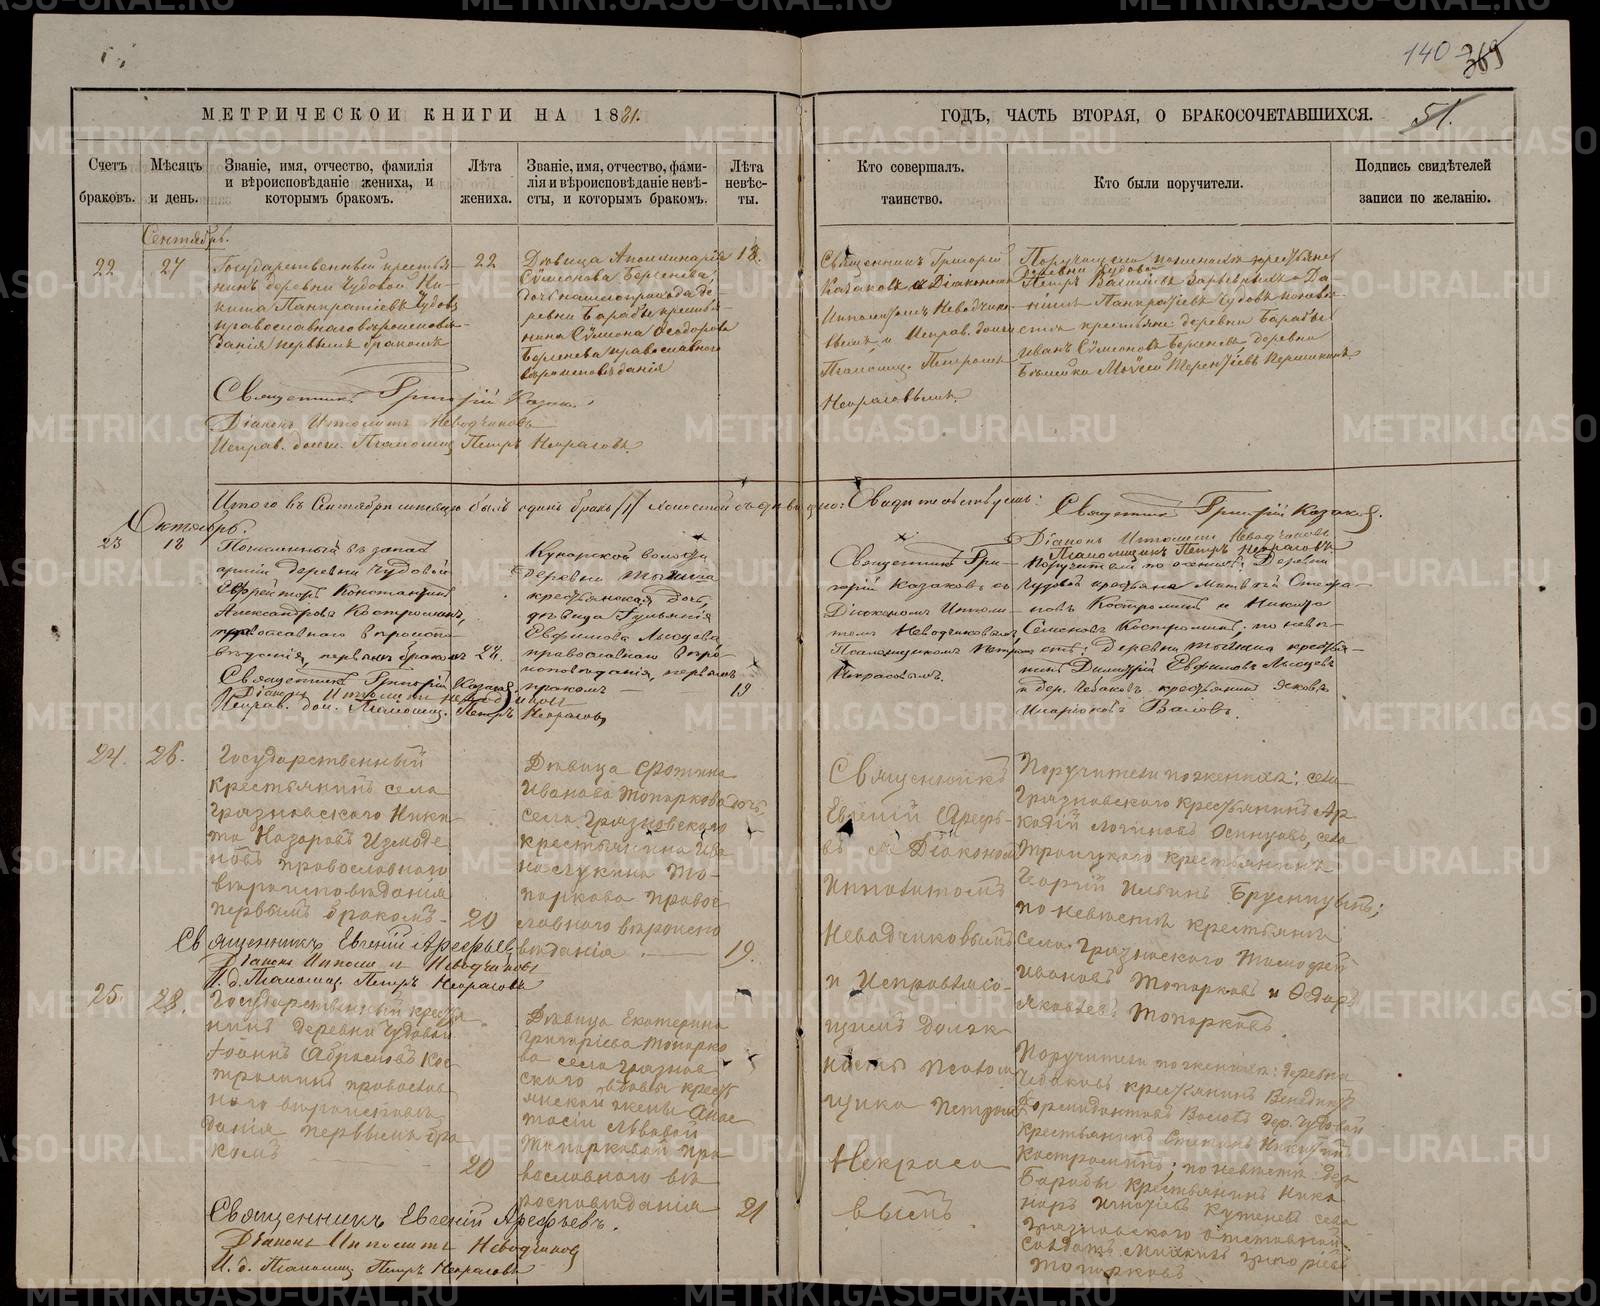 140
369
МЕТРИЧЕСКОЙ КНИГИ НА 1881.
ГОДЪ, ЧАСТЬ ВТОРАЯ, О БРАКОСОЧЕТАВШИХСЯ.
51.
Счетъ браковъ.
Мѣсяцъ и день.
Званіе, имя, отчество, фамилія и вѣроисповѣданіе жениха, и которымъ бракомъ.
Лѣта жениха.
Званіе, имя, отчество, фамилія и вѣроисповѣданіе невѣсты, и которымъ бракомъ.
Лѣта невѣсты.
Кто совершалъ таинство.
Кто были поручители.
Подпись свидѣтелей записи по желанію.
Сентябрь.
22
27
Государственный крестья-
нинъ деревни Чудовой Ни-
кита Панкратіевъ Чудовъ
православнаго вѣроисповѣ-
данія первымъ бракомъ
22
Дѣвица Аполлинарія
Сумеонова Берсенева,
дочь нашего прихода де-
ревни Барабы крестья-
нина Сумеона Ѳеодорова
Берсенева православнаго
вѣроисповѣданія
18.
Священникъ Григорій
Казаковъ съ Діакономъ
Ипполитомъ Неводчико-
вымъ и Исправ. долж.
Псаломщ. Петромъ
Некрасовымъ.
Поручители по женихѣ крестьяне
деревни Чудовой
Петръ Васильевъ
Панкратіевъ Чудовъ по невѣ-
стѣ крестьяне деревни Барабы
Иванъ Сумеоновъ Берсеневъ, деревни
Терентіевъ
Священникъ Григорій Казаковъ
Діаконъ Ипполитъ Неводчиковъ
Исправ. долж. Псаломщ. Петръ Некрасовъ.
Итого въ Сентябрѣ мѣсяцѣ былъ одинъ бракъ /1/
Свидѣтельствуемъ:
Священникъ Григорій Казаковъ.
Діаконъ Ипполитъ Неводчиковъ
Псаломщикъ Петръ Некрасовъ.
Октябрь.
23
18
деревни Чудовой
Ефрейторъ Константинъ
Александровъ Костроминъ,
православнаго вѣроиспо-
вѣданія, первымъ бракомъ
24.
Кунарской волости
деревни
крестьянская дочь,
дѣвица Гульянія
Евфимова
православнаго вѣро-
исповѣданія, первымъ
бракомъ
19
Священникъ Гри-
горій Казаковъ съ
Діакономъ Иппoли-
томъ Неводчиковымъ,
Псаломщикомъ Петромъ
Некрасовымъ.
Поручители по женихѣ: деревни
Чудовой крестьяне Матвѣй Стефа-
новъ Костроминъ и Никита
Семеновъ Костроминъ; по невѣ-
стѣ: деревни крестья-
нинъ Димитрій Евфимовъ
и дер. Чебаковъ крестьянинъ Яковъ
Иларіоновъ Валовъ.
Священникъ Григорій Казаковъ
Діаконъ Ипполитъ Неводчиковъ
Исправ. дол. Псаломщ. Петръ Некрасовъ
24.
26.
Государственный
крестьянинъ села
Грязновскаго Ники-
та Назаровъ Измоде-
новъ православнаго
вѣроисповѣданія
первымъ бракомъ
20
Дѣвица Фотина
Иванова Топоркова дочь
села Грязновскаго
крестьянина Ива
на Лукина То-
поркова право-
славнаго вѣроиспо
вѣданія.
19.
Священникъ
Евгеній Арефь-
евъ съ Діакономъ
Ипполитомъ
Неводчиковымъ
и Исправляю-
щимъ долж
ность Псалом
щика Петромъ
Некрасо
вымъ
Поручители по женихѣ: села
Грязновскаго крестьянинъ Ар
кадій Логиновъ Осинцовъ, села
Троицкаго крестьянинъ
Георгій Ильинъ Брусницынъ;
по невѣстѣ крестьяне
села Грязновскаго Тимофей
Ивановъ Топорковъ и Ѳедоръ
Яковлевъ Топорковъ.
Священникъ Евгеній Арефьевъ
Діаконъ Ипполитъ Неводчиковъ
И. д. Псаломщ. Петръ Некрасовъ
25.
28.
Государственный крестья
нинъ деревни Чудовой
Іоаннъ Абрамовъ Кос-
троминъ православ
наго вѣроисповѣ
данія первымъ бра
комъ
20
Дѣвица Екатерина
Григоріева Топорко
ва села Грязнов
скаго вдовы кресть
янской жены Анас
тасіи Львовой
Топорковой пра
вославнаго вѣ
роисповѣданія
21
Поручители по женихѣ: деревни
Чебаковъ крестьянинъ Венедиктъ
Валовъ дер. Чудовой
крестьянинъ Стефанъ Никитинъ
Костроминъ; по невѣстѣ дер
Барабы крестьянинъ Ника
норъ Игнатіевъ села
Грязновскаго отставной
солдатъ Михаилъ Григоріевъ
Топорковъ
Священникъ Евгеній Арефьевъ.
Діаконъ Ипполитъ Неводчиковъ
И. д. Псаломщ. Петръ Некрасовъ
METRIKI.GASO-URAL.RU